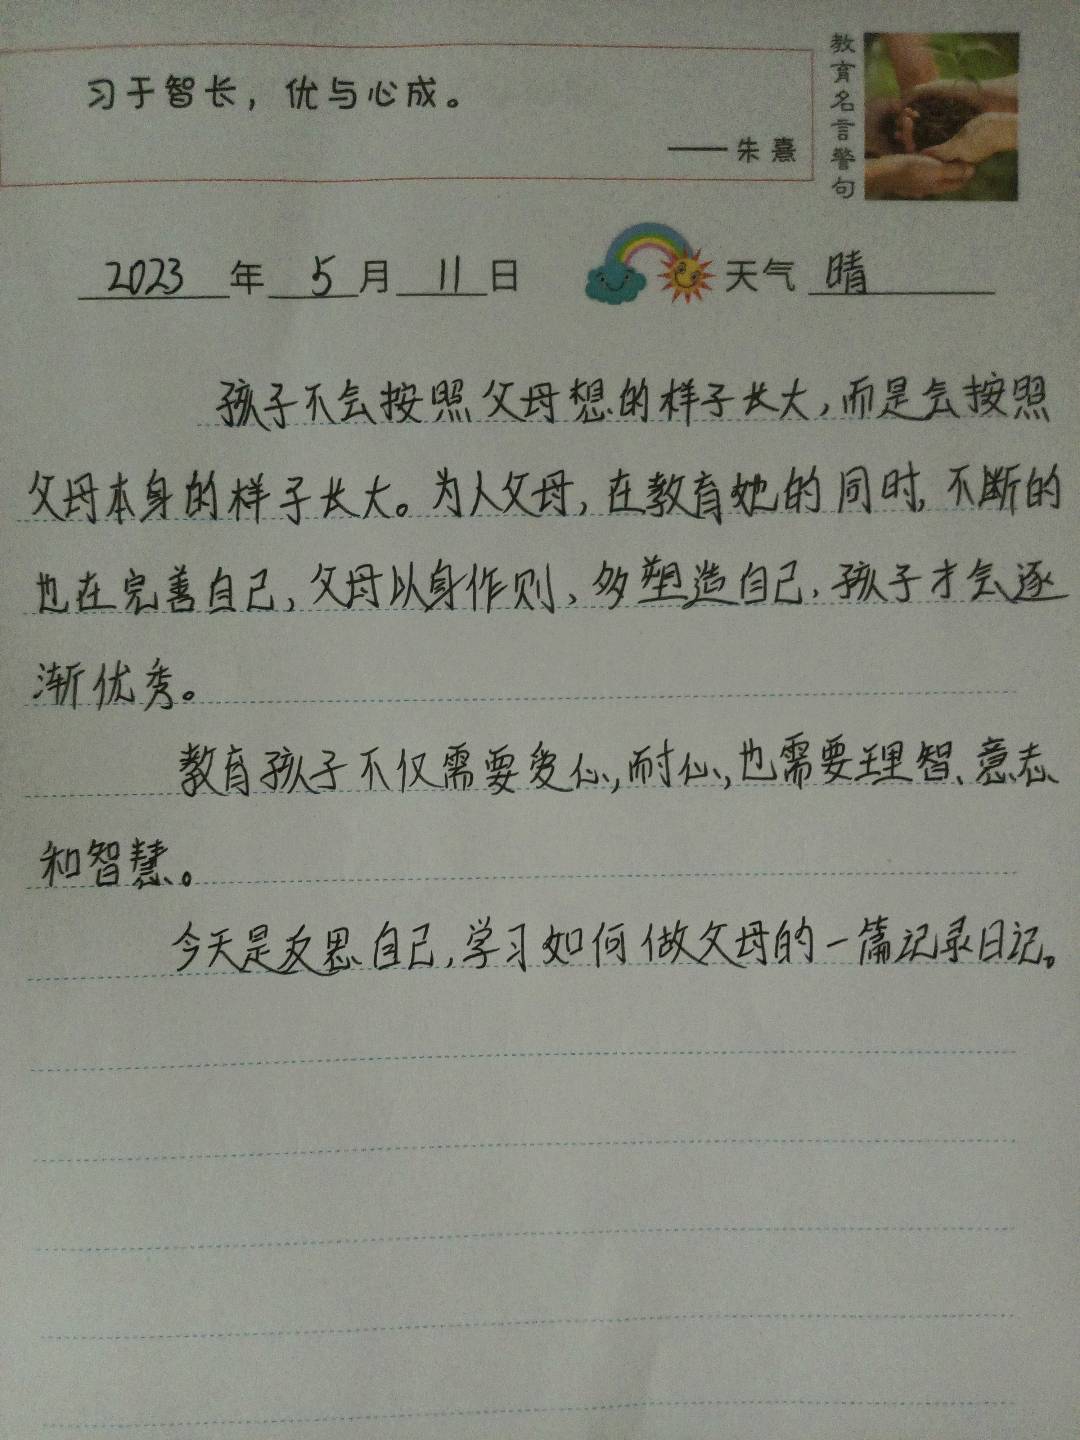 习于智长，优与心成。
——朱熹
教育名言警句
2023年5月11日 天气 晴
孩子不会按照父母想的样子长大，而是会按照
父母本身的样子长大。为人父母，在教育她的同时，不断的
也在完善自己，父母以身作则、多塑造自己，孩子才会逐
渐优秀。
教育孩子不仅需要爱心，耐心，也需要理智、意志
和智慧。
今天是反思自己，学习如何做父母的一篇记录日记。